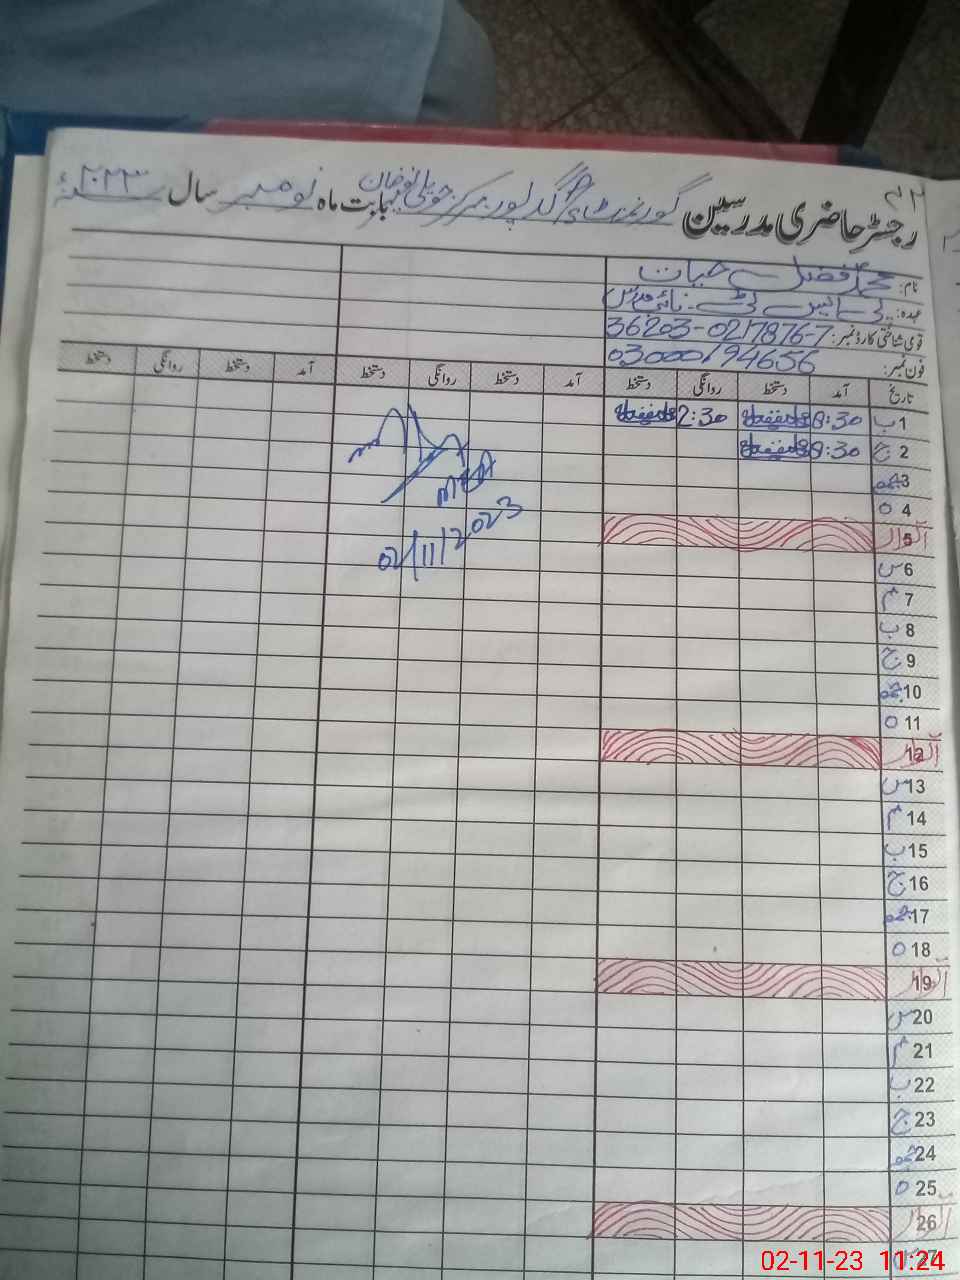 رجسٹر حاضری مدرسین گورنمنٹ بابت ماہ نومبر سال ۲۰۲۳
نام: محمد افضل حیات
عہدہ:
قومی شناختی کارڈ نمبر: 36203-0217876-7
فون نمبر: 03000194656
تاریخ آمد دستخط روانگی دستخط آمد دستخط روانگی دستخط آمد دستخط روانگی دستخط
1 ب 8:30 2:30
2 ج 8:30
3 جمعہ
4 ہ
5 اتوار
6 س
7 م
8 ب
9 ج
10 جمعہ
11 ہ
12 اتوار
13 س
14 م
15 ب
16 ج
17 جمعہ
18 ہ
19 اتوار
20 س
21 م
22 ب
23 ج
24 جمعہ
25 ہ
26 اتوار
27 س
MEA
02/11/2023
02-11-23 11:24